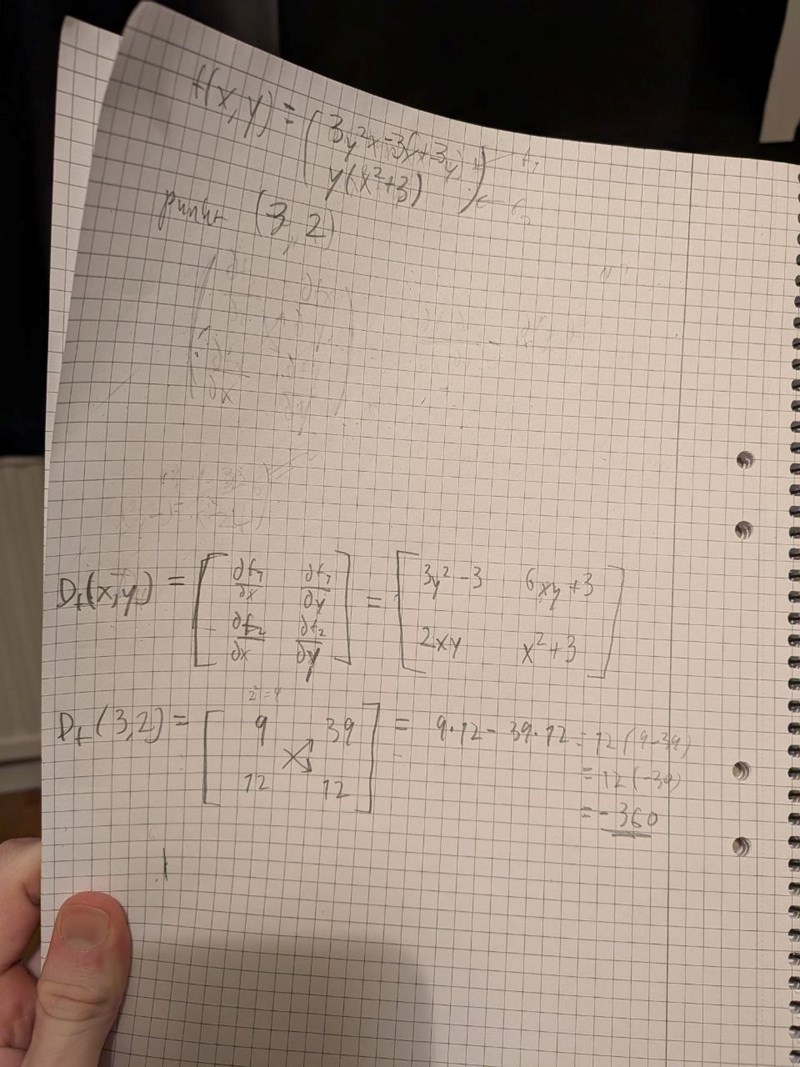 f(x,y) = ( 3y²x-3x+3y ) ← f₁
( y(x²+3) ) ← f₂
punkt (3,2)
∂x
Df(x,y) = [ ∂f₁/∂x ∂f₁/∂y ; ∂f₂/∂x ∂f₂/∂y ] = [ 3y²-3 6xy+3 ; 2xy x²+3 ]
2²=4
Df(3,2) = [ 9 39 ; 12 12 ] = 9·12 - 39·12 = 12(9-39)
= 12(-30)
= -360